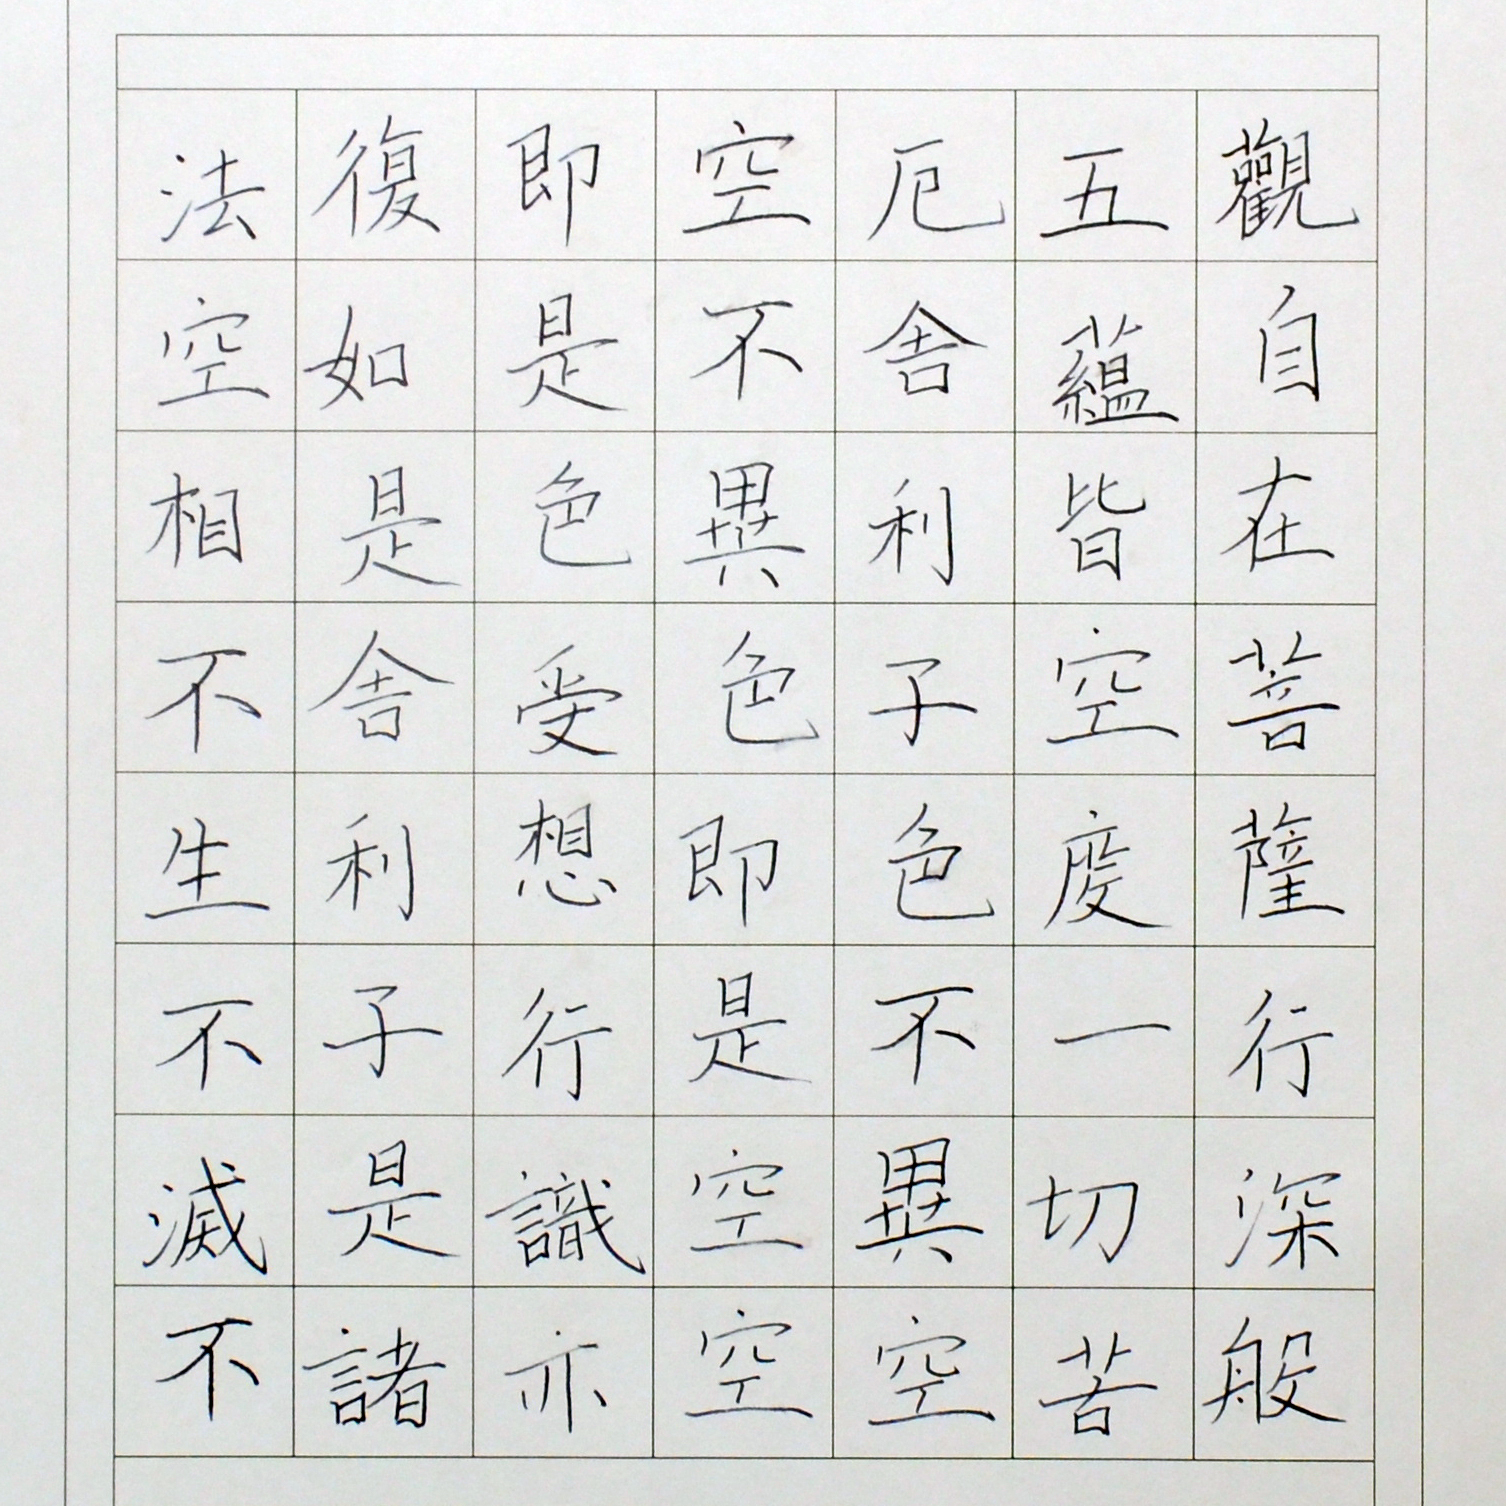 觀自在菩薩行深般
五蘊皆空度一切苦
厄舎利子色不異空
空不異色即是空空
即是色受想行識亦
復如是舎利子是諸
法空相不生不滅不